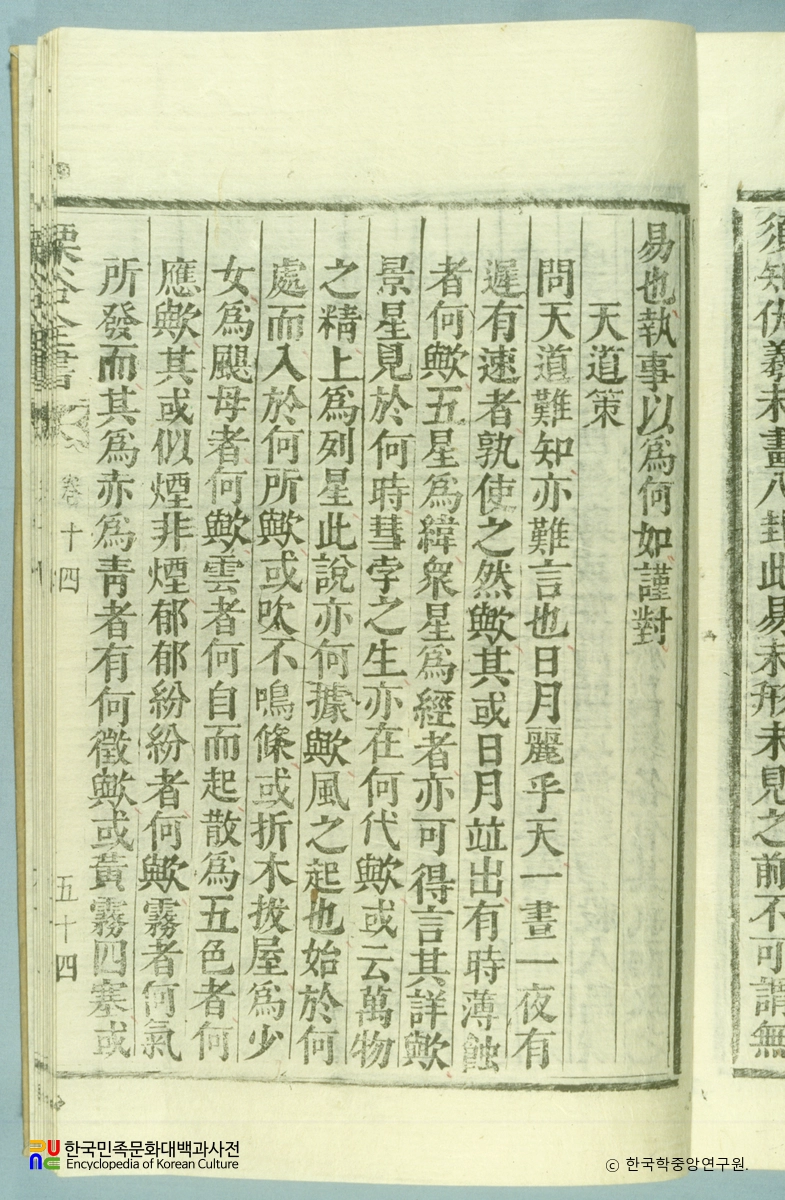 須知伏羲未畫八卦此易未形未見之前不可謂無
易也執事以爲何如謹對
天道策
問天道難知亦難言也日月麗乎天一晝一夜有
遲有速者孰使之然歟其或日月竝出有時薄蝕
者何歟五星爲緯衆星爲經者亦可得言其詳歟
景星見於何時彗孛之生亦在何代歟或云萬物
之精上爲列星此說亦何據歟風之起也始於何
處而入於何所歟或吹不鳴條或折木拔屋爲少
女爲颶母者何歟雲者何自而起散爲五色者何
應歟其或似煙非煙郁郁紛紛者何歟霧者何氣
所發而其爲赤爲靑者有何徵歟或黃霧四塞或
栗谷全書 卷十四 五十四
한국민족문화대백과사전
Encyclopedia of Korean Culture
ⓒ 한국학중앙연구원.